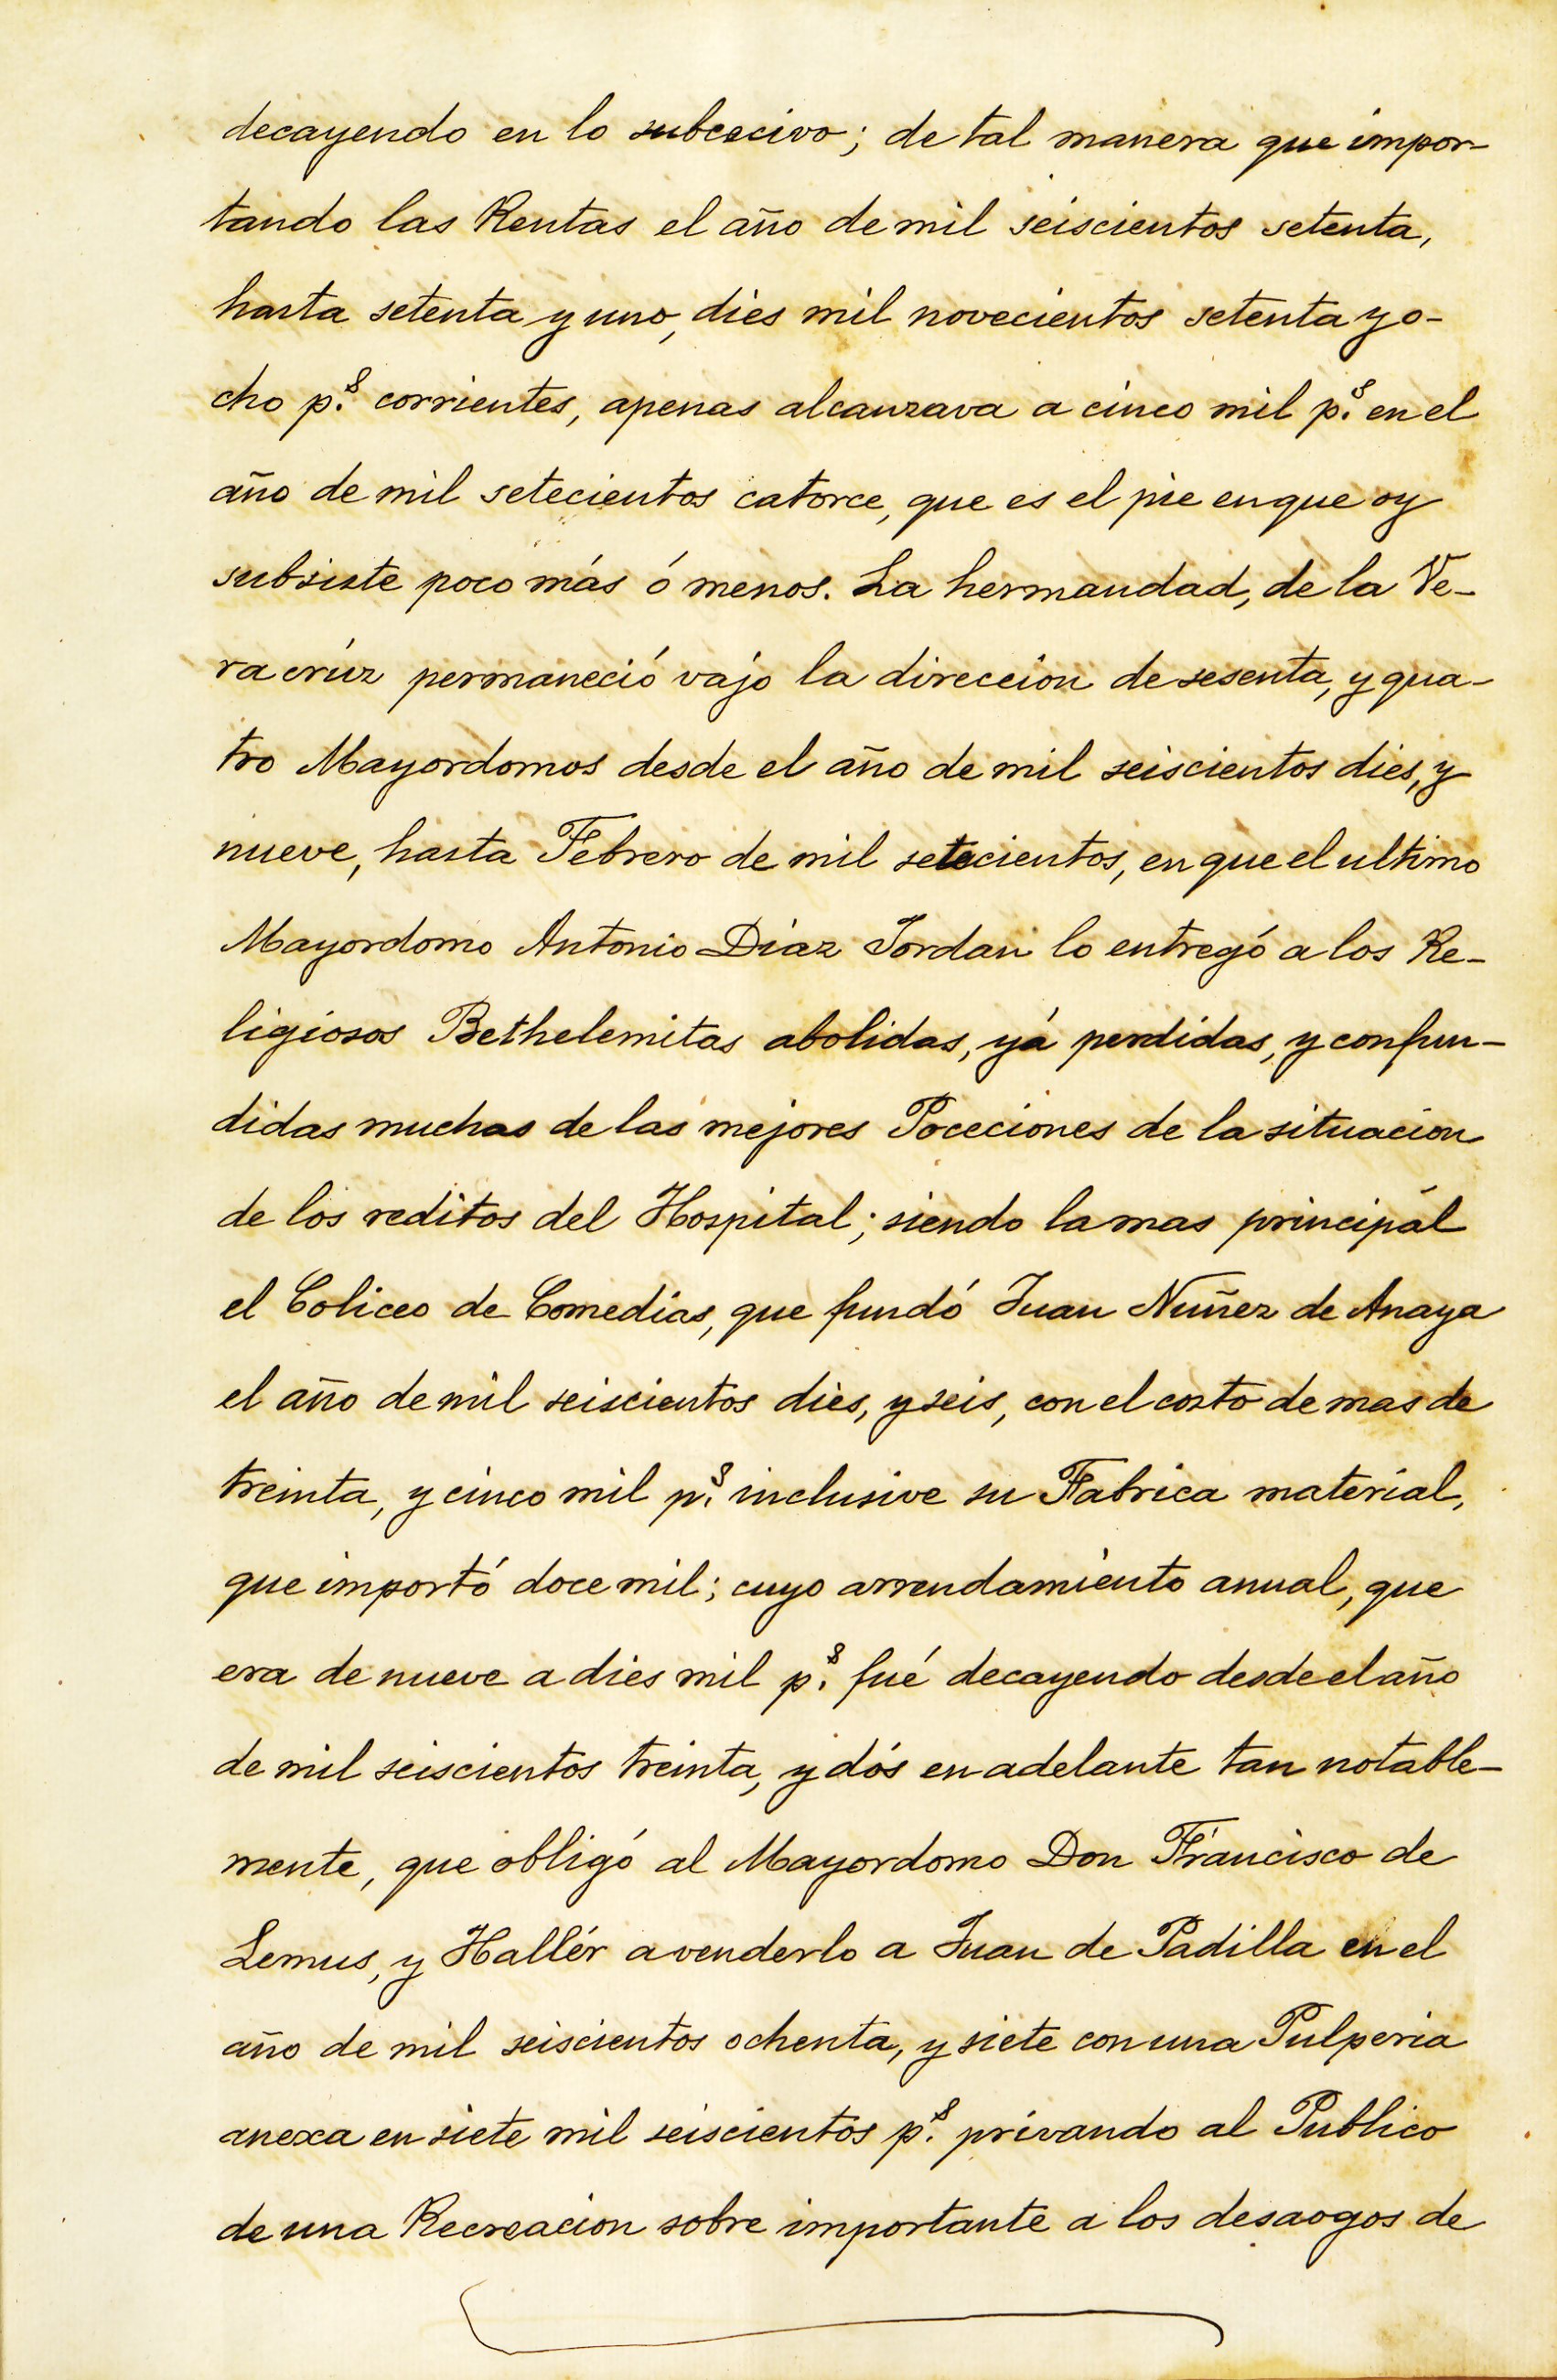 decayendo en lo subcecivo; de tal manera que impor-
tando las Rentas el año de mil seiscientos setenta,
hasta setenta y uno, dies mil novecientos setenta y o-
cho p.s corrientes, apenas alcanzava a cinco mil p.s en el
año de mil setecientos catorce, que es el pie en que oy
subsiste poco más ó menos. La hermandad, de la Ve-
ra crúz permaneció vajo la direccion de sesenta, y qua-
tro Mayordomos desde el año de mil seiscientos dies, y
nueve, hasta Febrero de mil setecientos, en que el ultimo
Mayordomo Antonio Diaz Jordan lo entregó a los Re-
ligiosos Bethelemitas abolidas, yá perdidas, y confun-
didas muchas de las mejores Poceciones de la situacion
de los reditos del Hospital; siendo la mas principál
el Coliceo de Comedias, que fundó Juan Nuñez de Anaya
el año de mil seiscientos dies, y seis, con el costo de mas de
treinta, y cinco mil p.s inclusive su Fabrica material,
que importó doce mil; cuyo arrendamiento anual, que
era de nueve a dies mil p.s fué decayendo desde el año
de mil seiscientos treinta, y dós en adelante tan notable-
mente, que obligó al Mayordomo Don Francisco de
Lemus, y Hallér a venderlo a Juan de Padilla en el
año de mil seiscientos ochenta, y siete con una Pulperia
anexa en siete mil seiscientos p.s privando al Publico
de una Recreacion sobre importante a los desaogos de